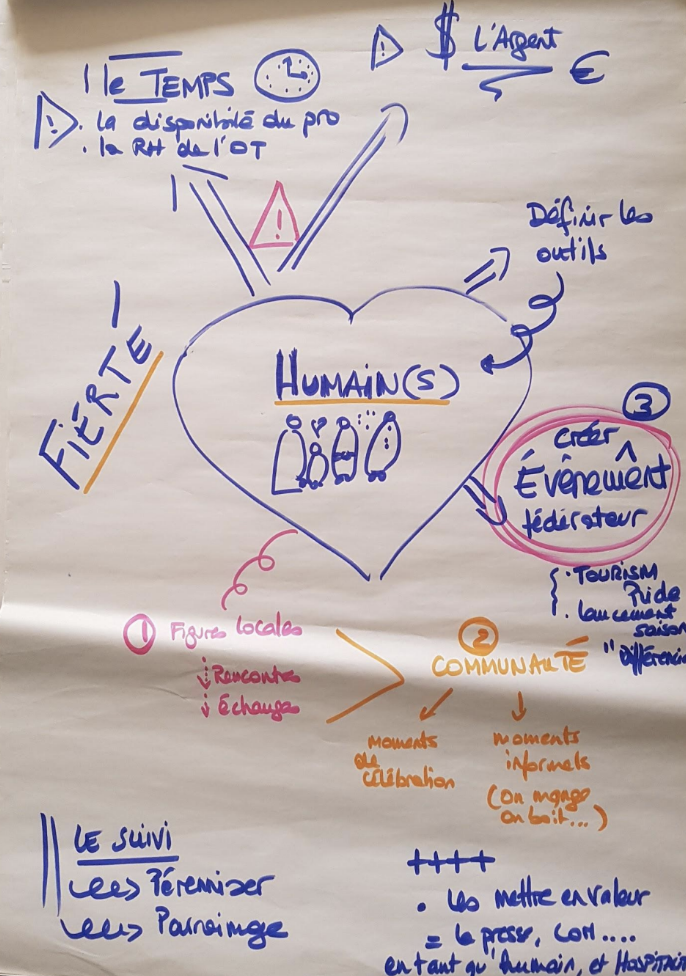 $ L'Argent €
! le TEMPS
. la disponibilité du pro
. la RH de l'OT
!
!
!
Définir les
outils
FIERTÉ
HUMAIN(S)
3
créer
Évênement
fédérateur
. TOURISM
Pride
. lancement
saison
" différenci
1 Figures locales
Rencontres
Échanges
2
COMMUNAUTÉ
moments
de
célébration
moments
informels
(on mange
on boit...)
LE SUIVI
Pérenniser
Parrainage
++++
. les mettre en valeur
= la presse, COM....
en tant qu'humain, et HOSPITALI